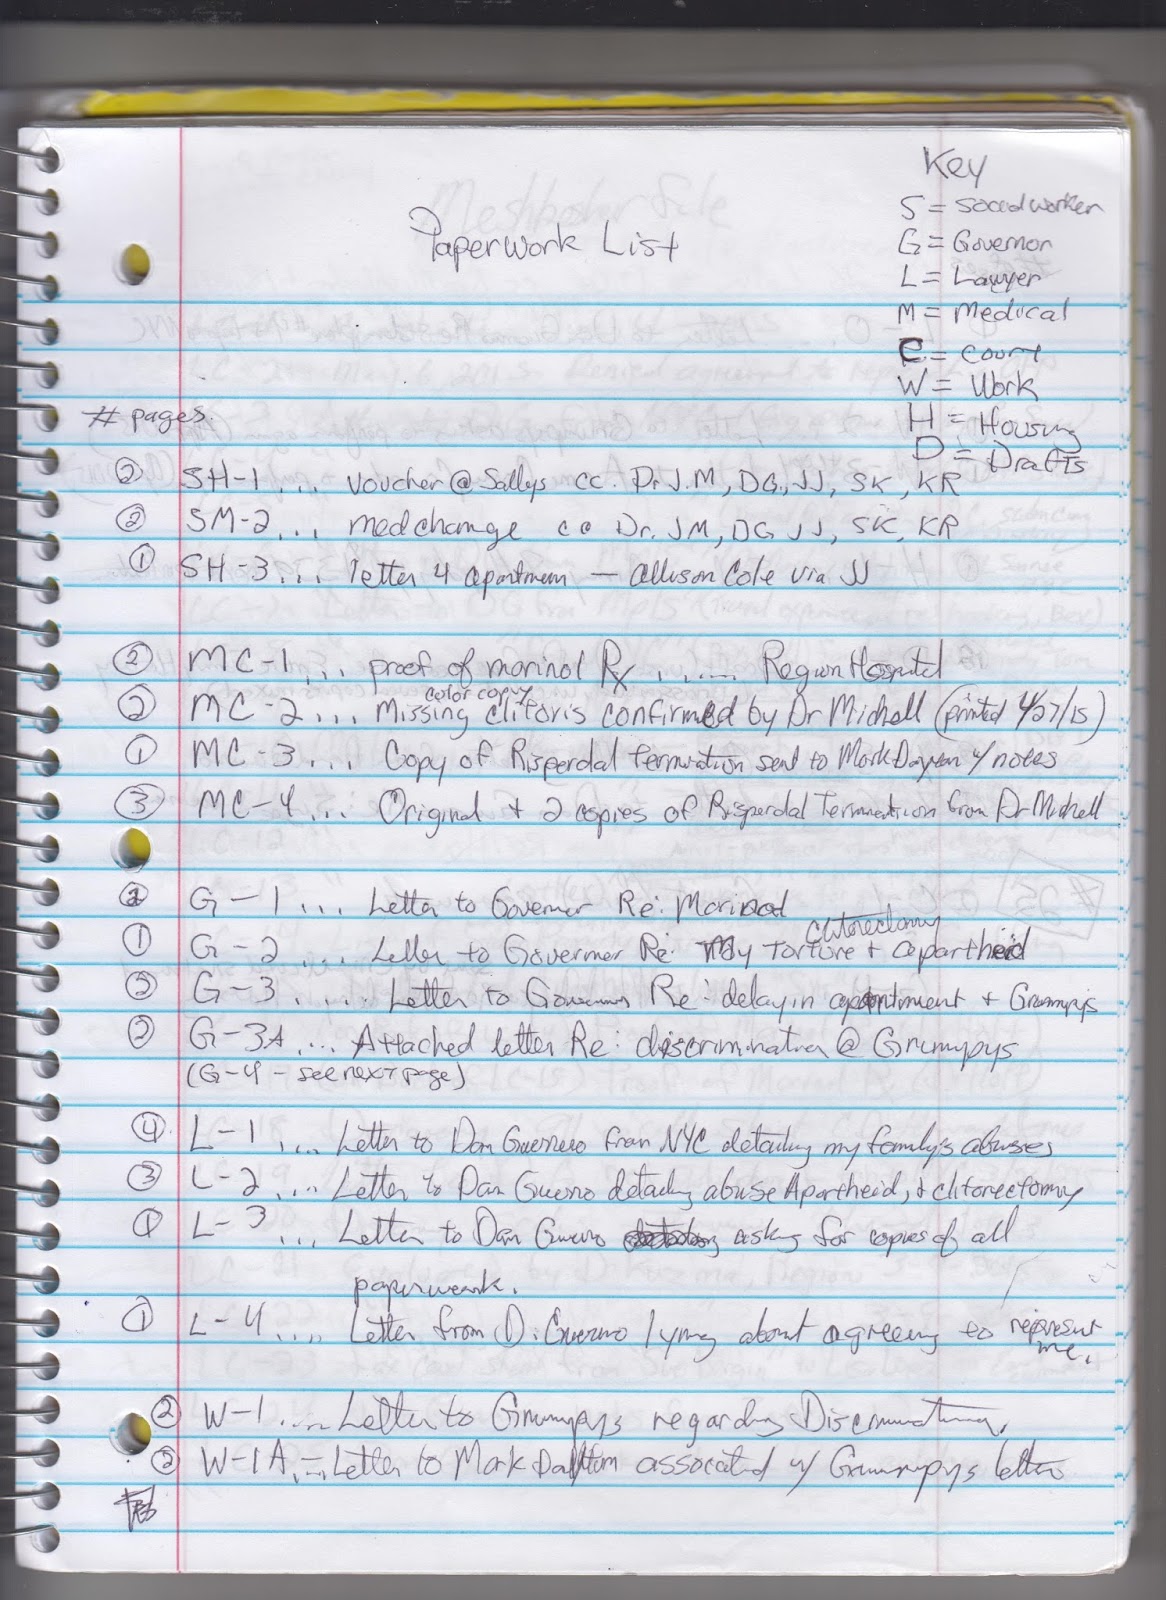 Key
S = social worker
Paperwork List
G = Governor
L = Lawyer
M = Medical
C = court
W = Work
# pages.
H = Housing
D = Drafts
② SH-1 ... voucher @ Sallys cc. Dr J.M, DG, JJ, SK, KR
② SM-2 ... med change cc Dr. JM, DG JJ, SK, KR
① SH-3 ... letter 4 apartmen — Allison Cole via JJ
② MC-1 ... proof of marinol Rx ...... Region Hospital
color copy
② MC-2 ... Missing clitoris confirmed by Dr Michell (printed 4/27/15)
① MC-3 ... Copy of Risperdal termination sent to Mark Dayton w/ notes
③ MC-4 ... Original + 2 copies of Risperdal Termination from Dr Michell
② G-1 ... Letter to Governor Re: Marinol
clitorectomy
① G-2 ... Letter to Governer Re: My torture + apartheid
② G-3 ..... Letter to Governor Re: delay in apartment + Grumpys
② G-3A .... Attached letter Re: discrimination @ Grumpys
(G-4 - see next page)
④ L-1 ... Letter to Dan Guerrero from NYC detailing my family's abuses
③ L-2 .... Letter to Dan Guerro detailing abuse Apartheid, + clitorectomy
① L-3 ... Letter to Dan Guerro asking for copies of all
paperwork.
① L-4 .... Letter from D. Guerrro lying about agreeing to represent
me.
② W-1 .... Letter to Grumpys regarding Discrimination.
② W-1A ... Letter to Mark associated w/ Grumpys letter